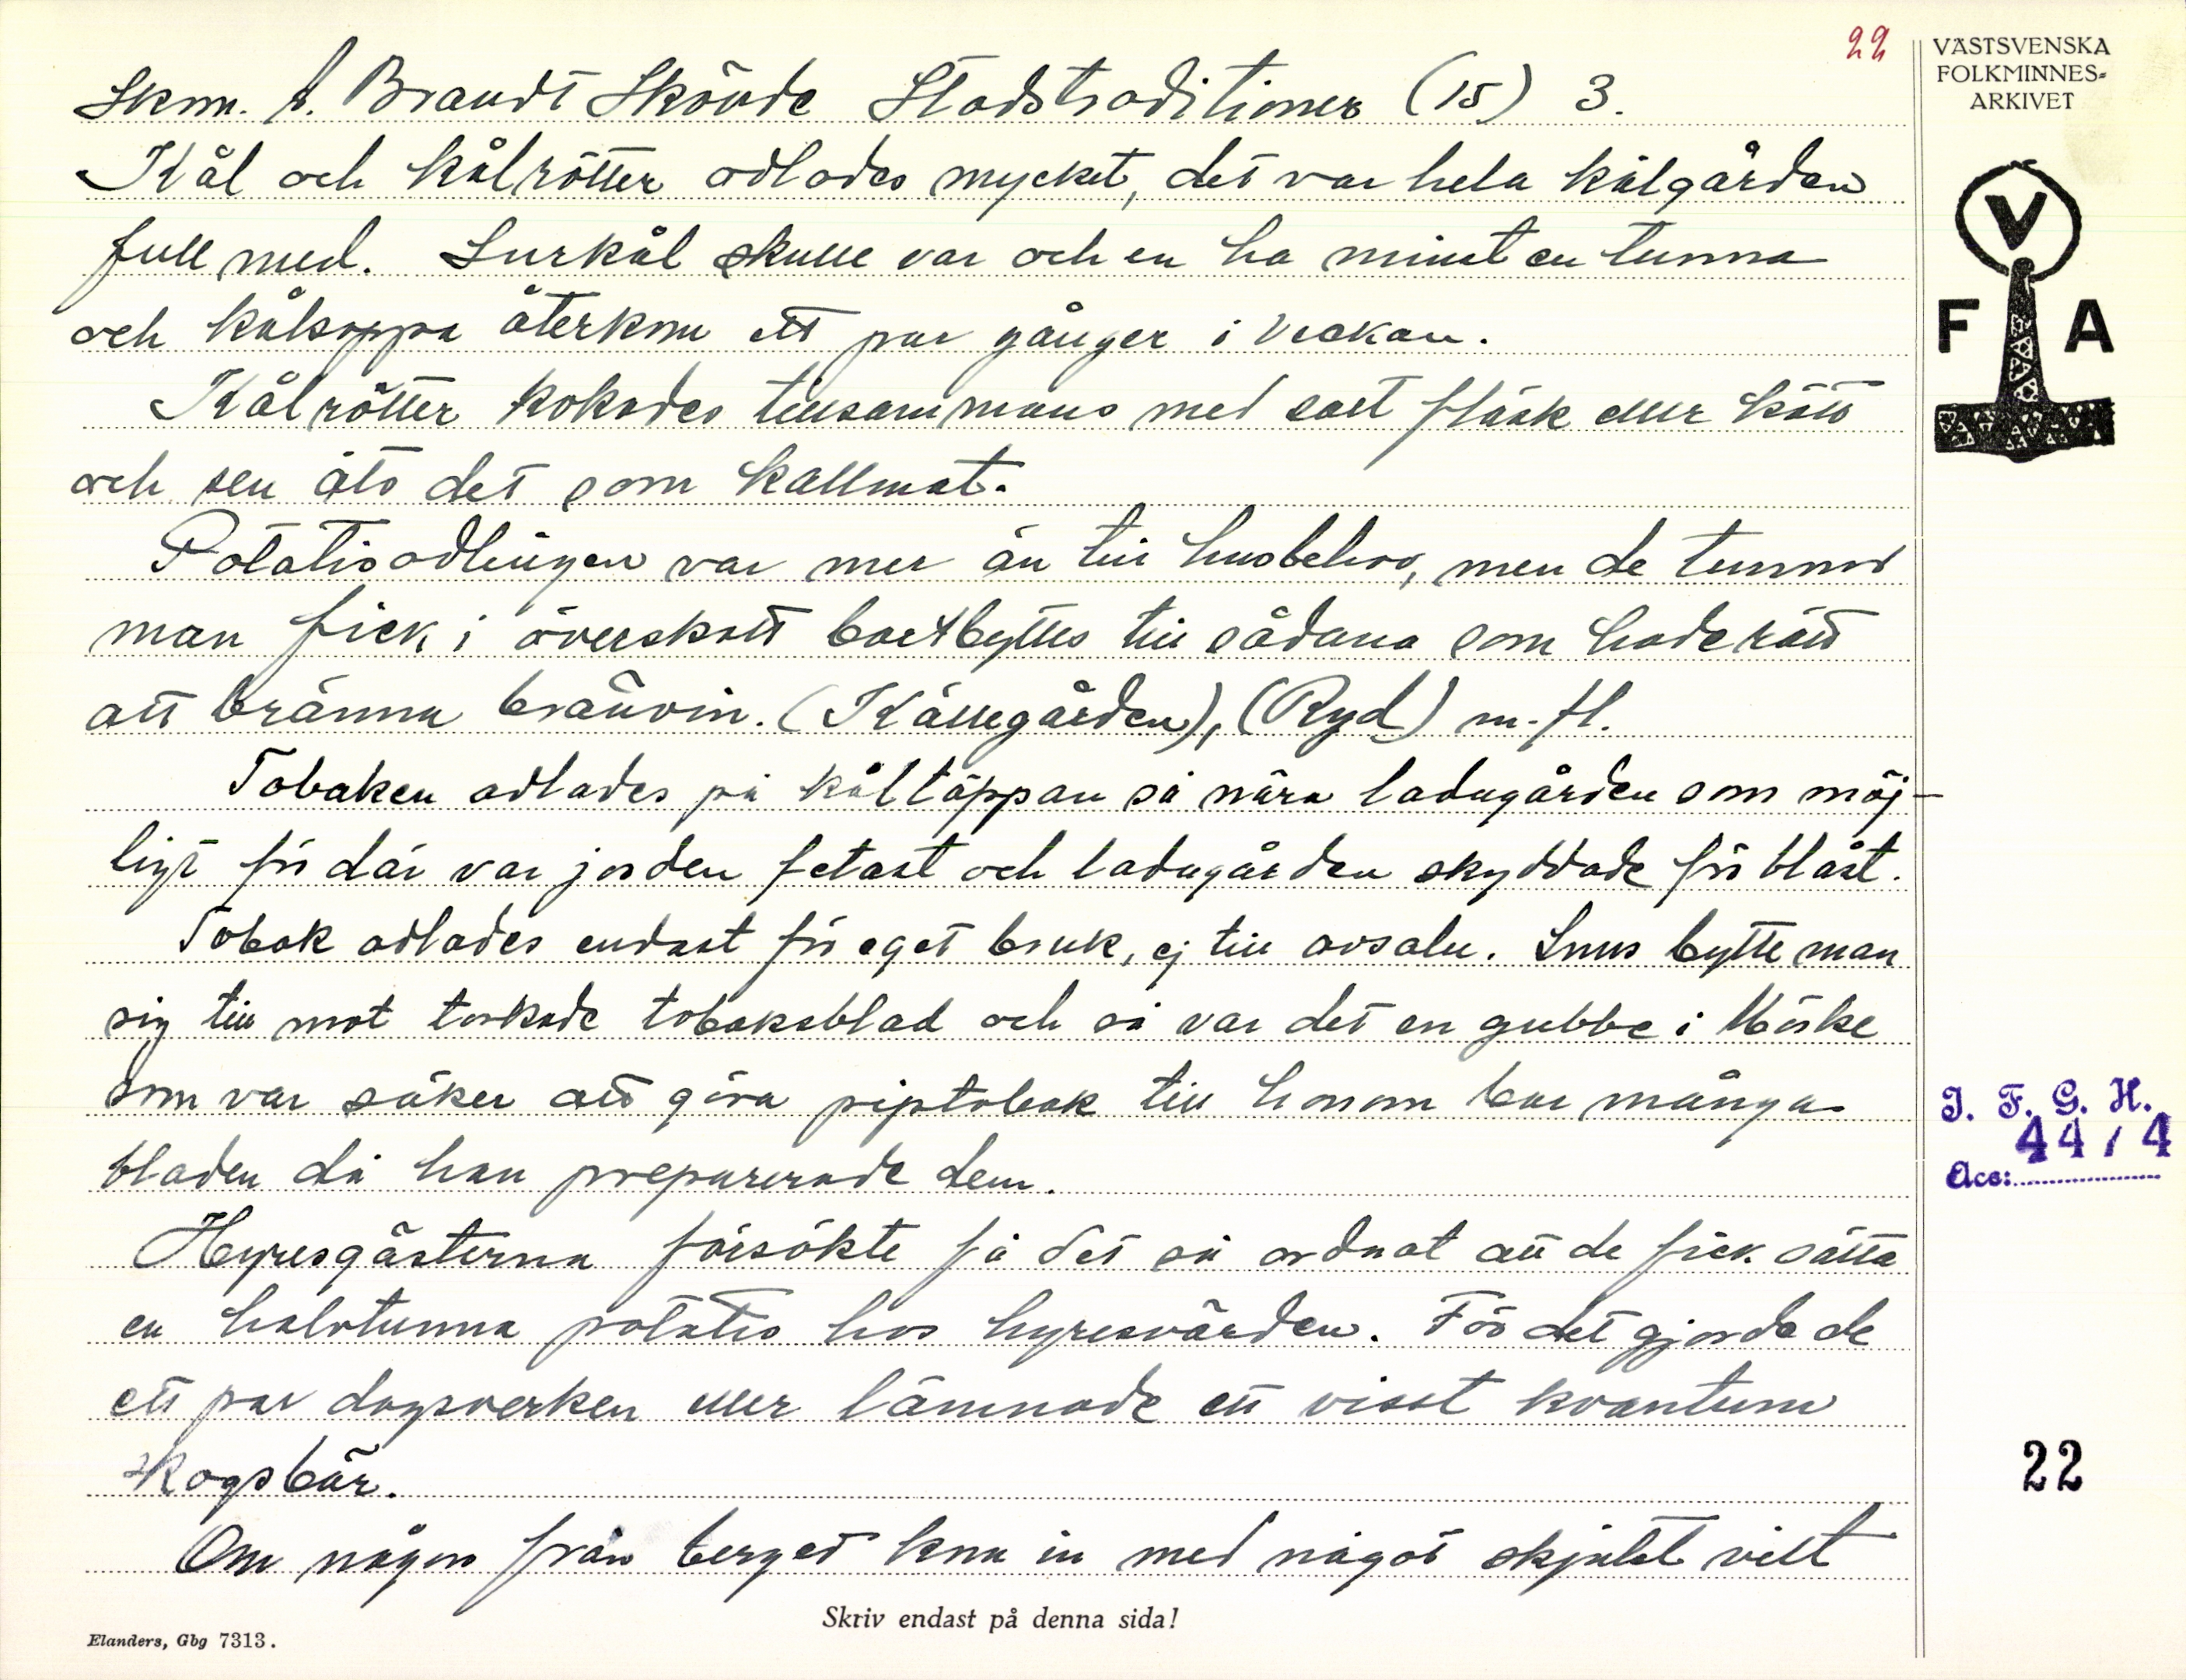 22
VÄSTSVENSKA
FOLKMINNES-
ARKIVET
V
F A
Skrm. A. Brandt Skövde Stadstraditioner (15) 3.
Kål och kålrötter odlades mycket, det var hela kålgården
full med. Surkål skulle var och en ha minst en tunna
och kålsoppa återkom ett par gånger i veckan.
Kålrötter kokades tillsammans med salt fläsk eller kött
och sen åts det som kallmat.
Potatisodlingen var mer än till husbehov, men de tunnor
man fick i överskott bortbyttes till sådana som hade rätt
att bränna brännvin. (Källegården), (Ryd) m.fl.
Tobaken odlades på kåltäppan så nära ladugården som möj-
ligt för där var jorden fetast och ladugården skyddade för blåst.
Tobak odlades endast för eget bruk, ej till avsalu. Snus bytte man
sig till mot torkade tobaksblad och så var det en gubbe i Mörke
som var säker att göra piptobak till honom bar många
bladen då han preparerade dem.
Hyresgästerna försökte få det så ordnat att de fick sätta
en halvtunna potatis hos hyresvärden. För det gjorde de
ett par dagsverken eller lämnade ett visst kvantum
skogsbär.
Om någon från berget kom in med något skjutet vilt
I. F. G. H.
44/4
Acc:
22
Skriv endast på denna sida!
Elanders, Gbg 7313.